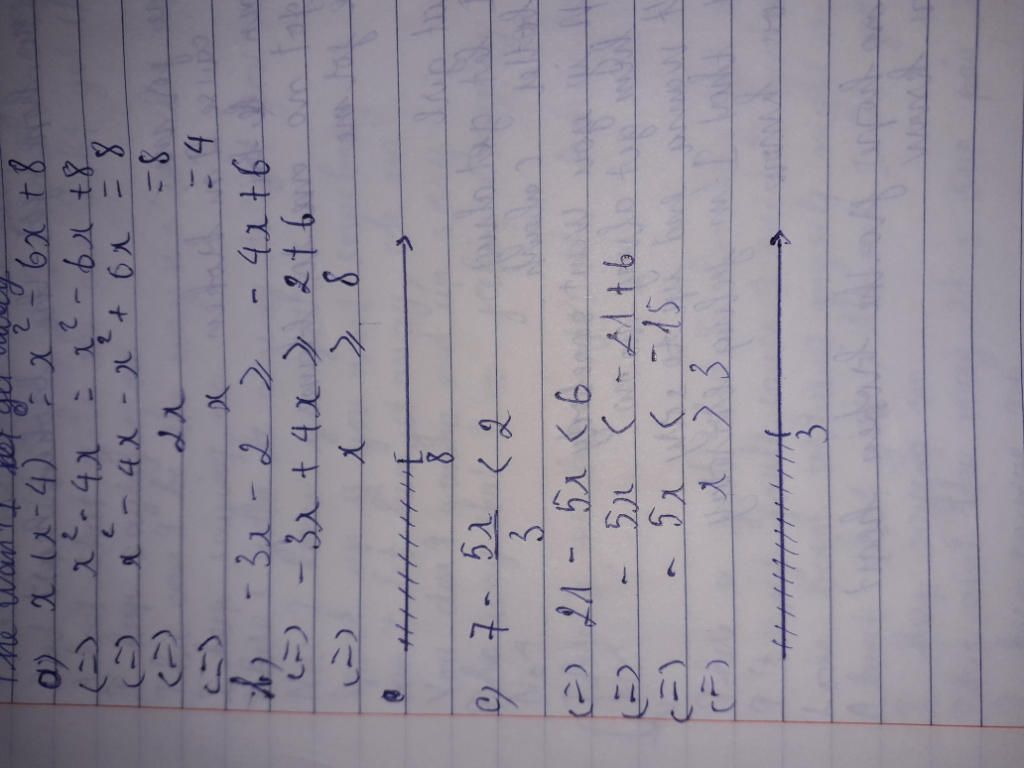 a) x(x-4) = x² - 6x + 8
(=) x² - 4x = x² - 6x + 8
(=) x² - 4x - x² + 6x = 8
(=) 2x = 8
(=) x = 4
b) -3x - 2 ⩾ -4x + 6
(=) -3x + 4x ⩾ 2 + 6
(=) x ⩾ 8
[
8
c) 7 - 5x/3 < 2
(=) 21 - 5x < 6
(=) -5x < -21 + 6
(=) -5x < -15
(=) x > 3
(
3